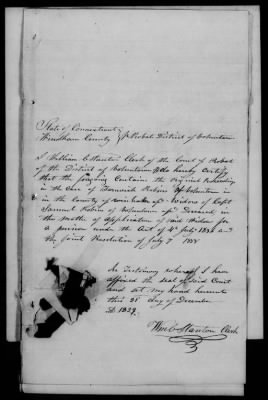 State of Connecticut
Windham County Probat District of Voluntown
I William C Stanton Clerk of the Court of Probat
of the District of Voluntown do hereby Certify
that the foregoing Contains the original
in the Case of Robins of
in the County of Widow of Capt
Samuel Robins of Deceased in
the matter of Application of said Widow for
a pension under the Act of 4th July 1836 and
the Joint Resolution of July 7 1838
In Testimony whereof I have
affixed the seal of said Court
and set my hand hereunto
this 31 day of December
AD 1839.
Wm C Stanton Clerk